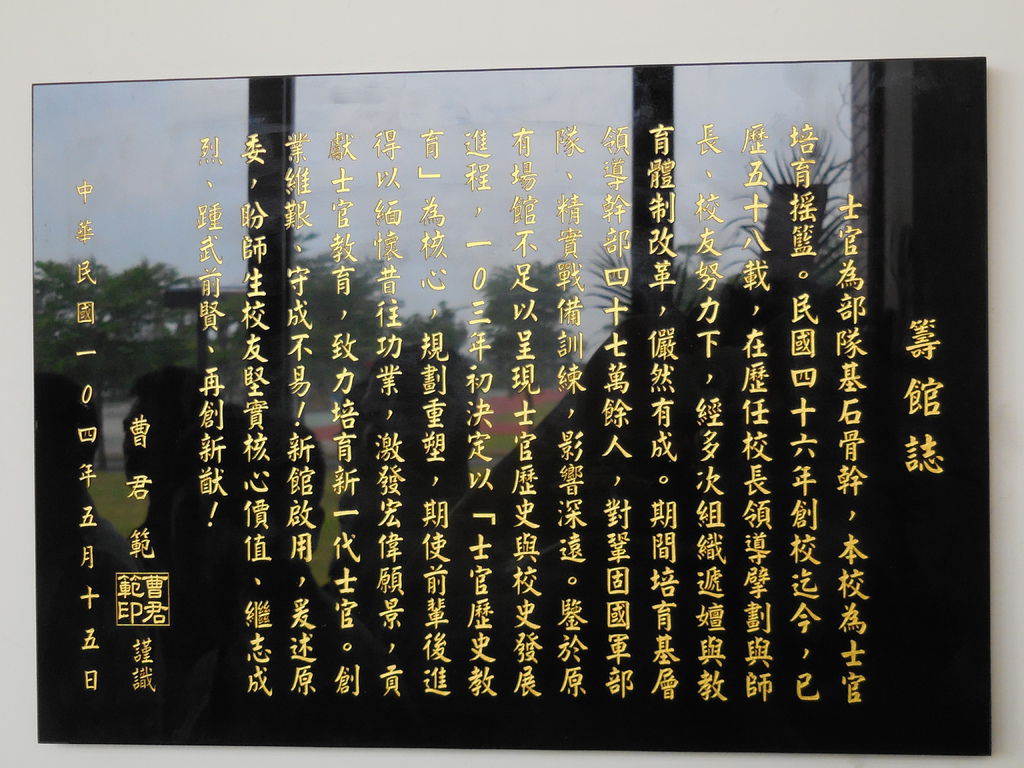 籌館誌
士官為部隊基石骨幹，本校為士官
培育搖籃。民國四十六年創校迄今，已
歷五十八載，在歷任校長領導擘劃與師
長、校友努力下，經多次組織遞嬗與教
育體制改革，儼然有成。期間培育基層
領導幹部四十七萬餘人，對鞏固國軍部
隊、精實戰備訓練，影響深遠。鑒於原
有場館不足以呈現士官歷史與校史發展
進程，一0三年初決定以「士官歷史教
育」為核心，規劃重塑，期使前輩後進
得以緬懷昔往功業，激發宏偉願景，貢
獻士官教育，致力培育新一代士官。創
業維艱、守成不易！新館啟用，爰述原
委，盼師生校友堅實核心價值、繼志成
烈、踵武前賢、再創新猷！
曹君範 曹君範印 謹識
中華民國一0四年五月十五日